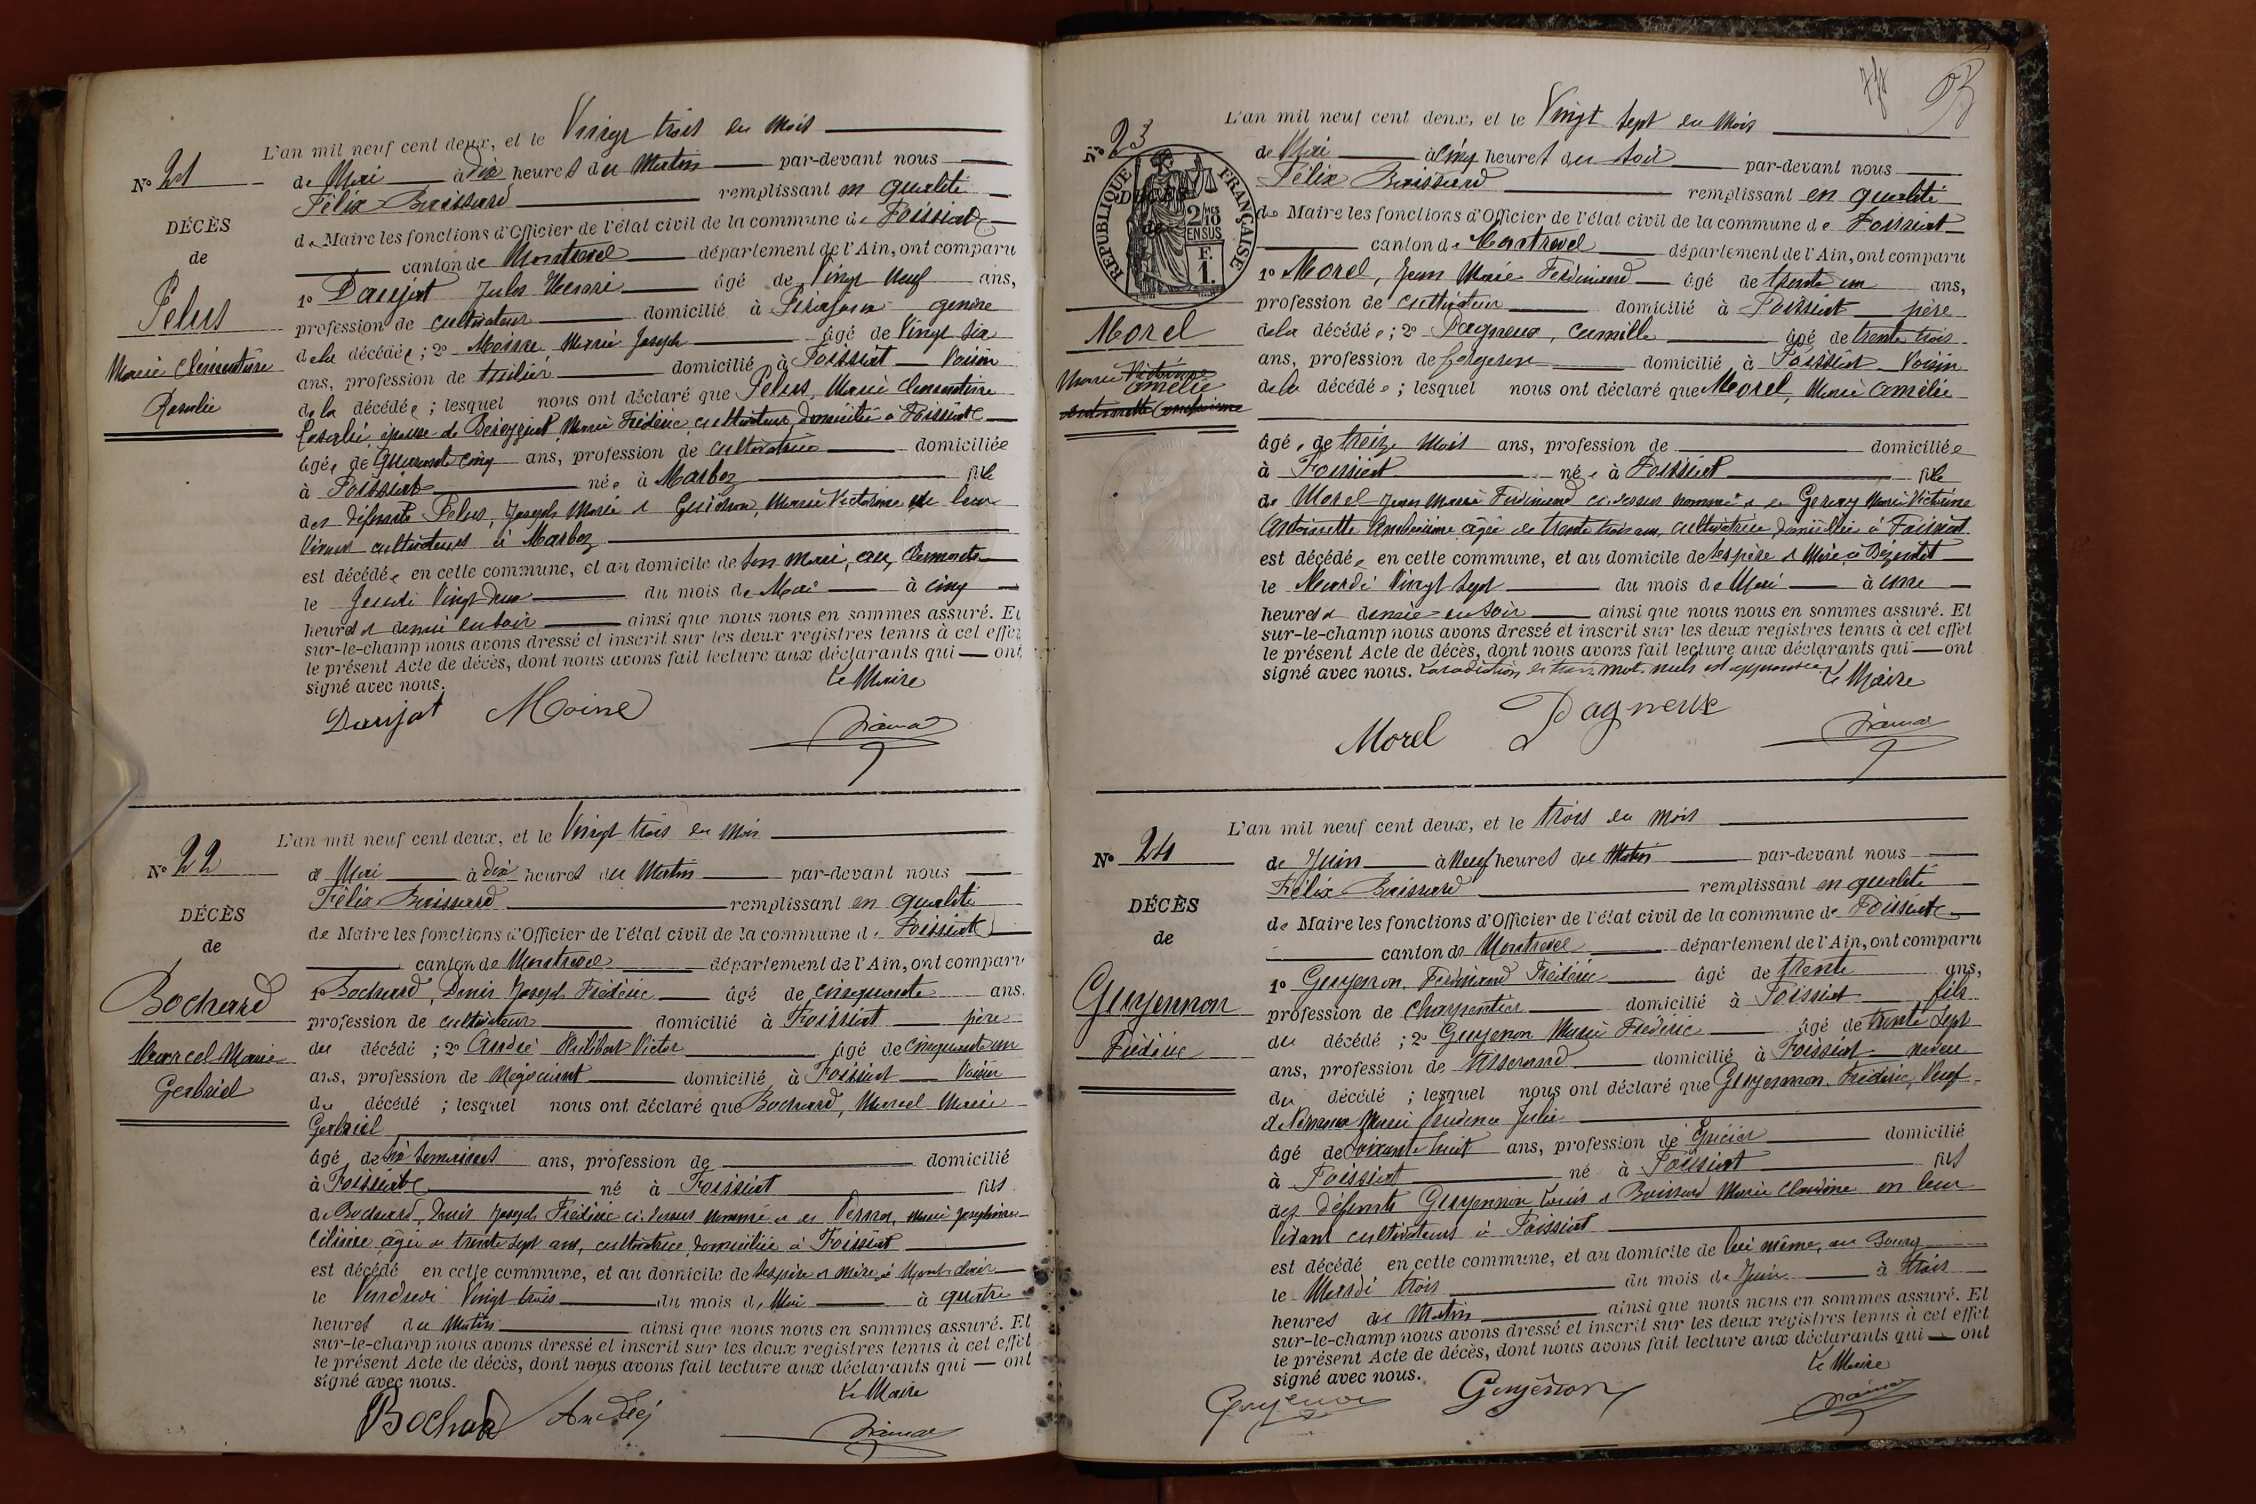 L'an mil neuf cent deux, et le Vingt trois du Mois
N° 21
de Mai à dix heures du Matin par-devant nous
Félix Buissard remplissant en qualité
DÉCÈS
de Maire les fonctions d'Officier de l'état civil de la commune de Foissiat
de
canton de Montrevel département de l'Ain, ont comparu
1° Daujat Jules Henri âgé de Vingt neuf ans,
Pelus
profession de cultivateur domicilié à gendre
de la décédée ; 2° Marie Joseph âgé de Vingt six
Marie Clémentine
ans, profession de domicilié à Foissiat Voisin
Rosalie
de la décédée ; lesquel nous ont déclaré que Pelus, Marie Clémentine
Rosalie, épouse de Marie Frédéric cultivateur, domicilié à Foissiat
âgée de quarante cinq ans, profession de cultivatrice domiciliée
à Foissiat née à Marboz fille
des défunts Pelus, Joseph Marie et Marie Victorine en leur
vivant cultivateurs à Marboz
est décédée en cette commune, et au domicile de son mari, aux
le Jeudi Vingt deux du mois de Mai à cinq
heures et demie du soir ainsi que nous nous en sommes assuré. Et
sur-le-champ nous avons dressé et inscrit sur les deux registres tenus à cet effet
le présent Acte de décès, dont nous avons fait lecture aux déclarants qui ont
signé avec nous. Le Maire
Daujat Moine
L'an mil neuf cent deux, et le Vingt trois du Mois
N° 22
de Mai à dix heures du Matin par-devant nous
Félix Buissard remplissant en qualité
DÉCÈS
de Maire les fonctions d'Officier de l'état civil de la commune de Foissiat
de
canton de Montrevel département de l'Ain, ont comparu
Bochard
1° Bochard, Denis Joseph Frédéric âgé de cinquante ans,
profession de cultivateur domicilié à Foissiat père
Marcel Marie
du décédé ; 2° André Philibert Victor âgé de cinquante un
Gerbriel
ans, profession de Négociant domicilié à Foissiat Voisin
du décédé ; lesquel nous ont déclaré que Bochard, Marcel Marie
Gerbriel
âgé de six semaines ans, profession de domicilié
à Foissiat né à Foissiat fils
de Bochard, Denis Joseph Frédéric ci-dessus nommé et de Marie Joséphine
âgée de trente sept ans, cultivatrice, domiciliée à Foissiat
est décédé en cette commune, et au domicile de ses père et mère, à
le Vendredi Vingt trois du mois de Mai à quatre
heures du Matin ainsi que nous nous en sommes assuré. Et
sur-le-champ nous avons dressé et inscrit sur les deux registres tenus à cet effet
le présent Acte de décès, dont nous avons fait lecture aux déclarants qui ont
signé avec nous. Le Maire
Bochard André
L'an mil neuf cent deux, et le Vingt sept du Mois
N° 23
de Mai à cinq heures du soir par-devant nous
Félix Buissard remplissant en qualité
REPUBLIQUE FRANÇAISE
2/10 EN SUS
F. 1.
DÉCÈS
de Maire les fonctions d'Officier de l'état civil de la commune de Foissiat
de
canton de Montrevel département de l'Ain, ont comparu
1° Morel, Jean Marie Ferdinand âgé de trente un ans,
profession de cultivateur domicilié à Foissiat père
Morel
de la décédée ; 2° Dagneux, Camille âgé de trente trois
Marie Victorine
Amélie
ans, profession de forgeron domicilié à Foissiat Voisin
de la décédée ; lesquel nous ont déclaré que Morel, Marie Amélie
âgée de treize mois ans, profession de domiciliée
à Foissiat née à Foissiat fille
de Morel Jean Marie Ferdinand ci-dessus nommé et de Marie Victorine
Antoinette âgée de trente trois ans, cultivatrice domiciliée à Foissiat
est décédée en cette commune, et au domicile de ses père et mère, à
le Mardi Vingt sept du mois de Mai à une
heure et demie du soir ainsi que nous nous en sommes assuré. Et
sur-le-champ nous avons dressé et inscrit sur les deux registres tenus à cet effet
le présent Acte de décès, dont nous avons fait lecture aux déclarants qui ont
signé avec nous. La radiation de trois mots nuls est approuvée. Le Maire
Morel Dagneux
L'an mil neuf cent deux, et le trois du mois
N° 24
de Juin à Neuf heures du Matin par-devant nous
Félix Buissard remplissant en qualité
DÉCÈS
de Maire les fonctions d'Officier de l'état civil de la commune de Foissiat
de
canton de Montrevel département de l'Ain, ont comparu
Guyennon
1° Guyenon, Ferdinand Frédéric âgé de trente ans,
profession de Charpentier domicilié à Foissiat fils
Frédéric
du décédé ; 2° Guyenon Marie Frédéric âgé de trente sept
ans, profession de tisserand domicilié à Foissiat neveu
du décédé ; lesquel nous ont déclaré que Guyennon, Frédéric, Veuf
de Marie Prudence Julie
âgé de soixante huit ans, profession de Épicier domicilié
à Foissiat né à Foissiat fils
des défunts Guyennon, Louis et Buissard Marie Claudine en leur
vivant cultivateurs à Foissiat
est décédé en cette commune, et au domicile de lui même, au Bourg
le Mardi trois du mois de Juin à trois
heures du Matin ainsi que nous nous en sommes assuré. Et
sur-le-champ nous avons dressé et inscrit sur les deux registres tenus à cet effet
le présent Acte de décès, dont nous avons fait lecture aux déclarants qui ont
signé avec nous. Le Maire
Guyenon Guyênon